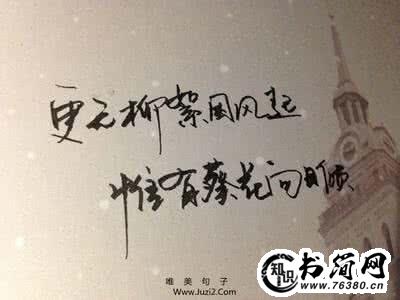 更无柳絮因风起
惟有葵花向日倾
唯美句子
Www.Juzi2.Com
知识 书简网
www.76380.cn